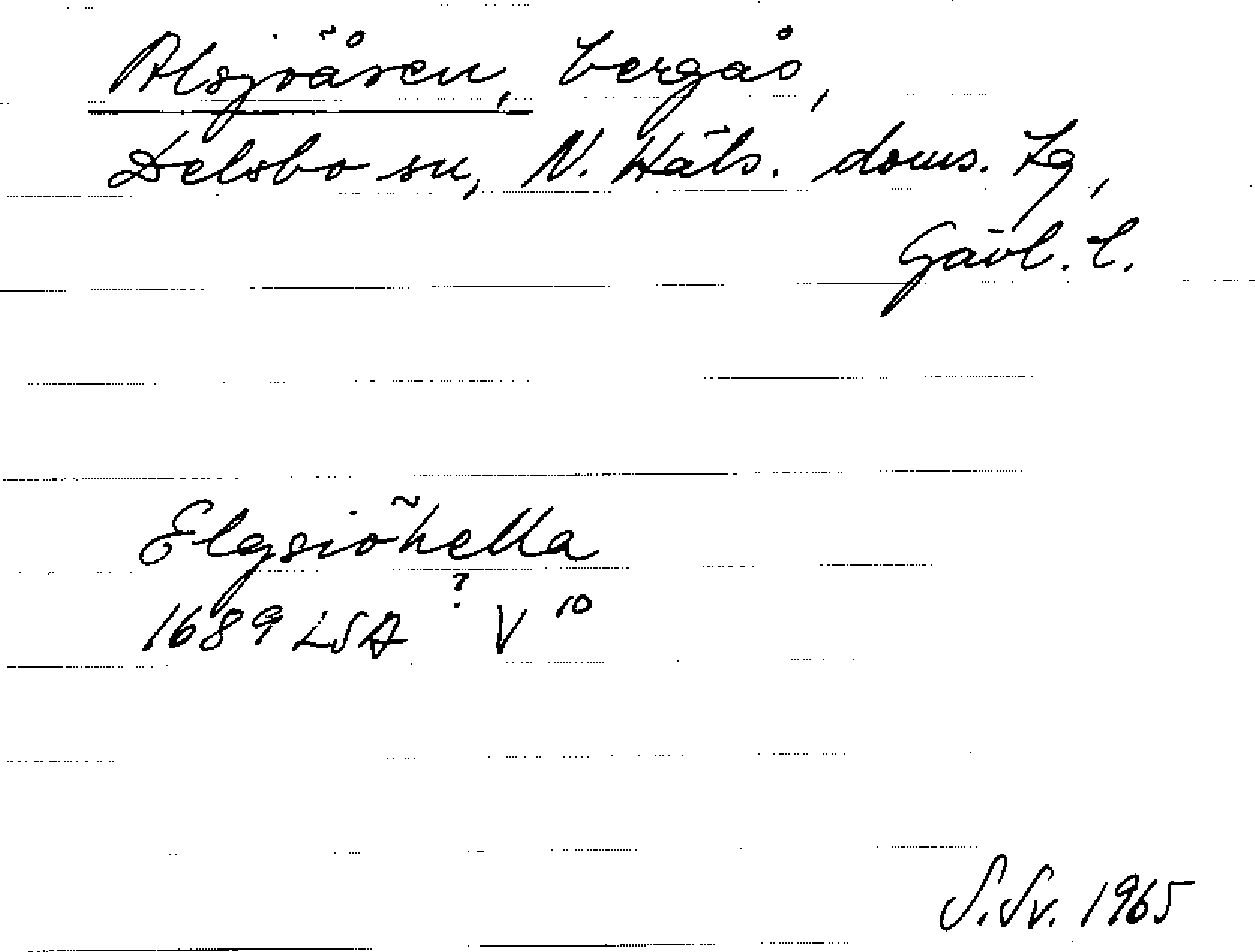 Alsjöåsen, bergås,
Delsbo sn, N. Häls. doms. Lg,
Gävl. l.
Elgsiöhella
?
1689 LSA V 10
S. Sv. 1965